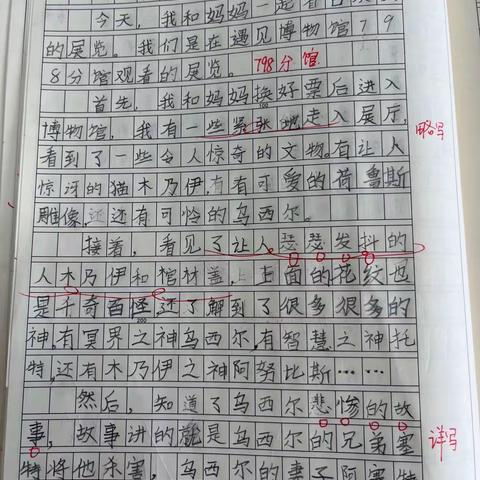 今天，我和妈妈一起看
的展览。我们是在遇见博物馆79
8分馆观看的展览。 798分馆
首先，我和妈妈换好票后进入
博物馆，我有一些紧张地走入展厅，
略写
看到了一些令人惊奇的文物。有让人
惊讶的猫木乃伊，有有可爱的荷鲁斯
雕像，还还有可怜的乌西尔。
接着，看见了让人瑟瑟发抖的
人木乃伊和棺材盖，上面的花纹也
是千奇百怪，还了解到了很多很多的
200
神。有冥界之神乌西尔，有智慧之神托
特，还有木乃伊之神阿努比斯……
然后，知道了乌西尔悲惨的故
事，故事讲的就是乌西尔的兄弟塞
详写
特将他杀害，乌西尔的妻子阿塞特